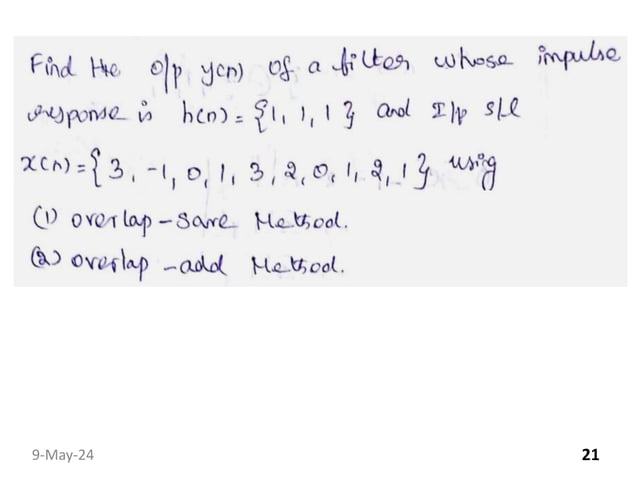 Find the o/p y(n) of a filter whose impulse
response is h(n) = {1, 1, 1} and I/p s/l
x(n) = {3, -1, 0, 1, 3, 2, 0, 1, 2, 1} using
(1) overlap-save Method.
(2) overlap-add Method.
9-May-24
21